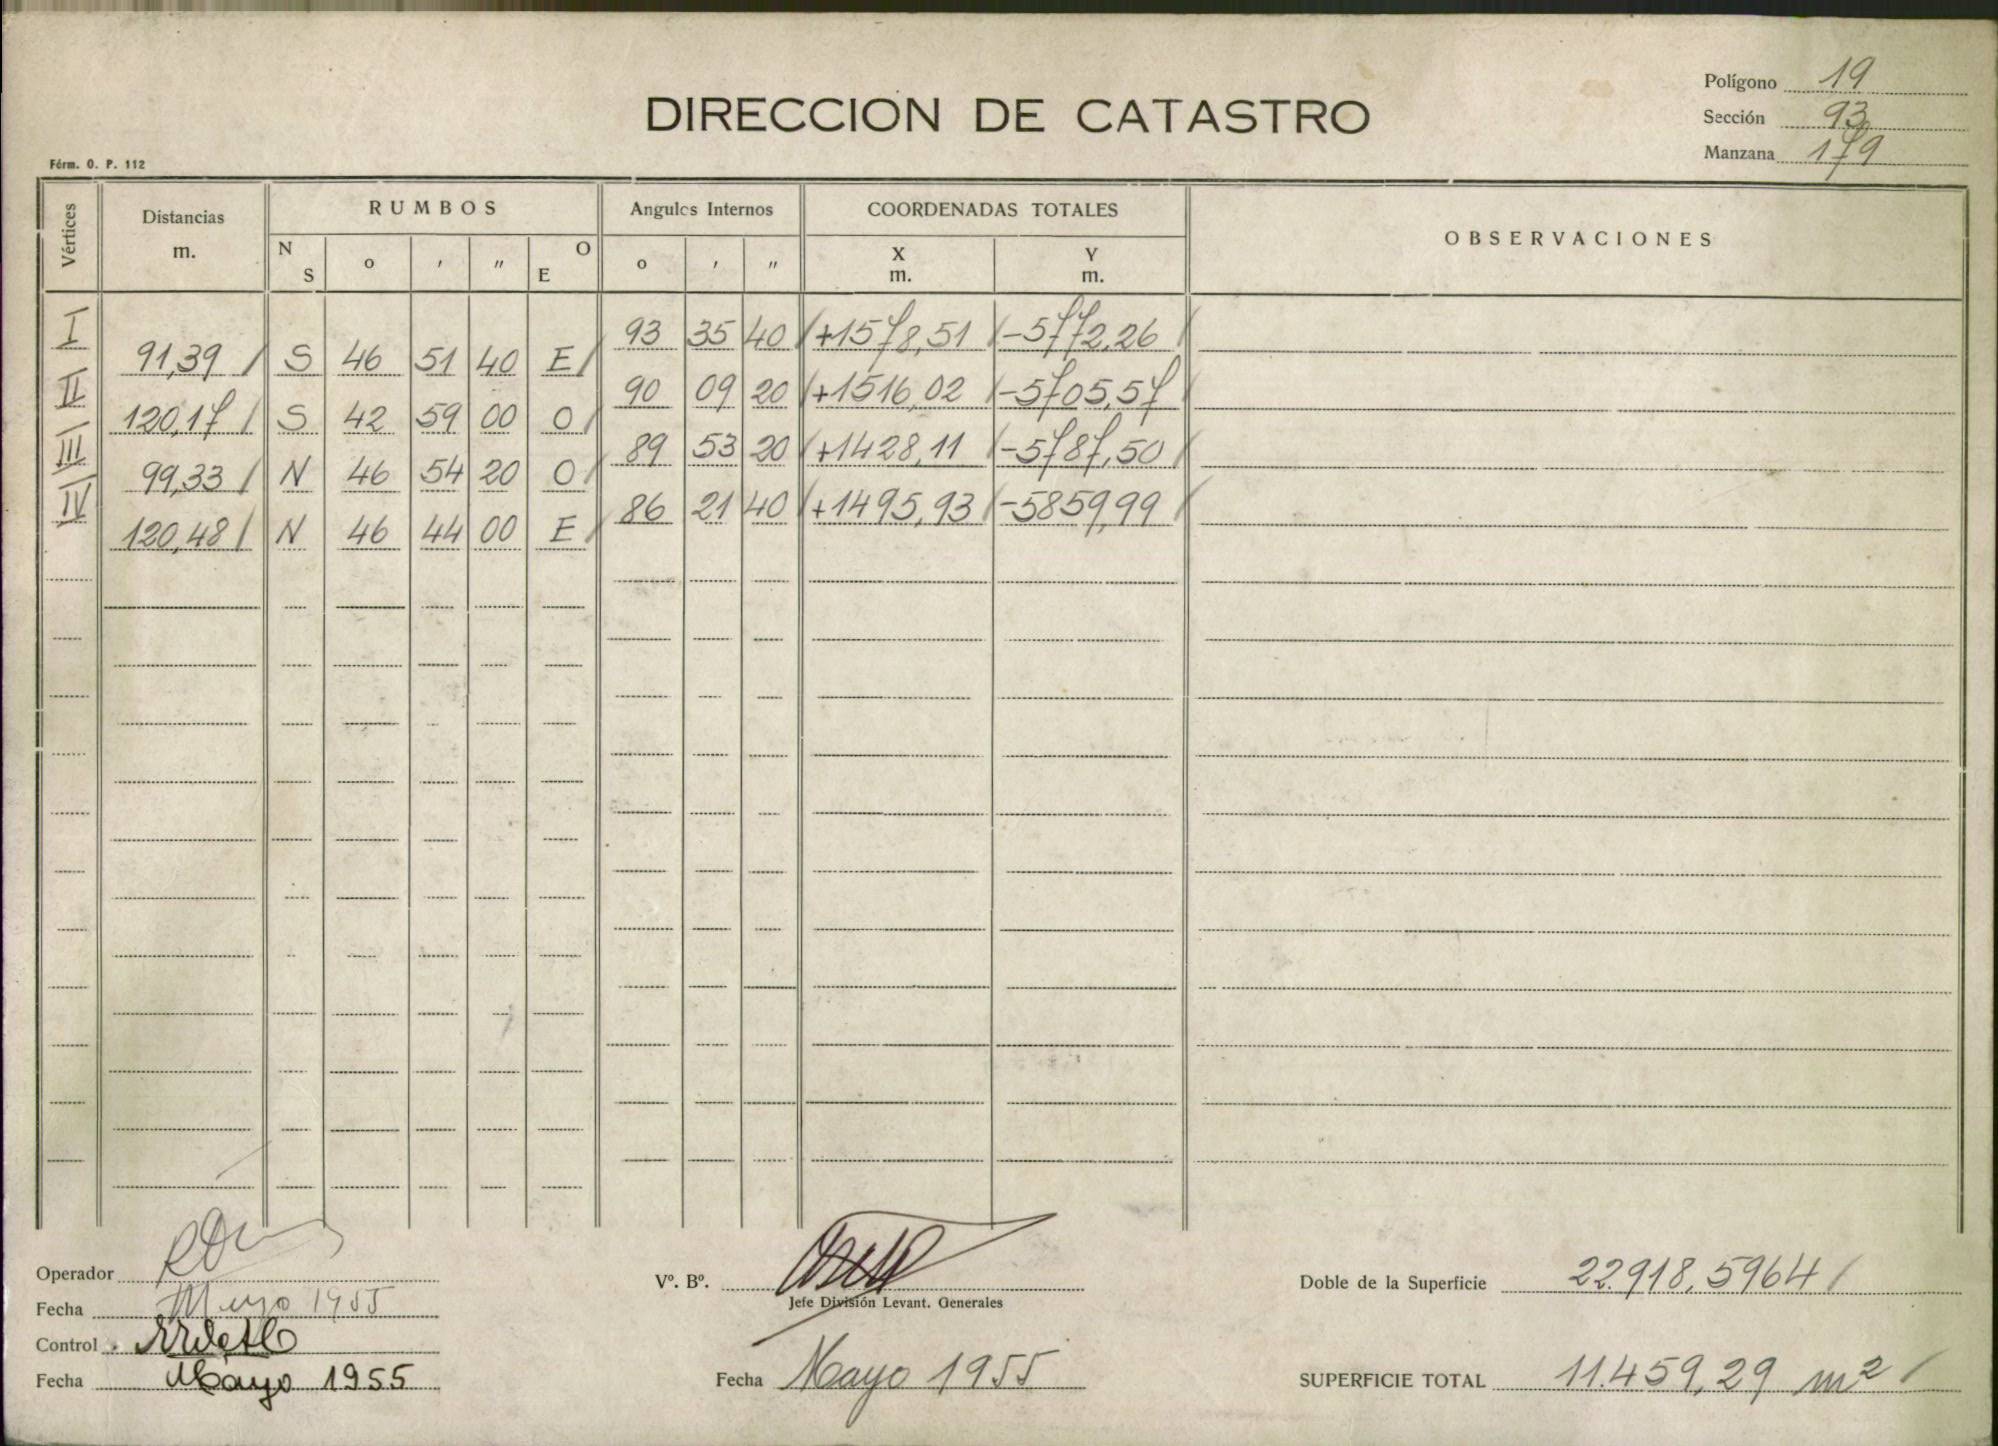 Polígono 19
DIRECCION DE CATASTRO
Sección 93
Manzana 179
Fórm. O. P. 112
Vértices Distancias m. RUMBOS Angulos Internos COORDENADAS TOTALES OBSERVACIONES
N S o ' " O E o ' " X m. Y m.
I 93 35 40 +1578,51 -5772,26
91,39 S 46 51 40 E
II 90 09 20 +1516,02 -5705,57
120,17 S 42 59 00 O
III 89 53 20 +1428,11 -5787,50
99,33 N 46 54 20 O
IV 86 21 40 +1495,93 -5859,99
120,48 N 46 44 00 E
Operador
Vº. Bº.
Doble de la Superficie 22918,5964
Jefe División Levant. Generales
Fecha Mayo 1955
Control
Fecha Mayo 1955
Fecha Mayo 1955
SUPERFICIE TOTAL 11.459,29 m2